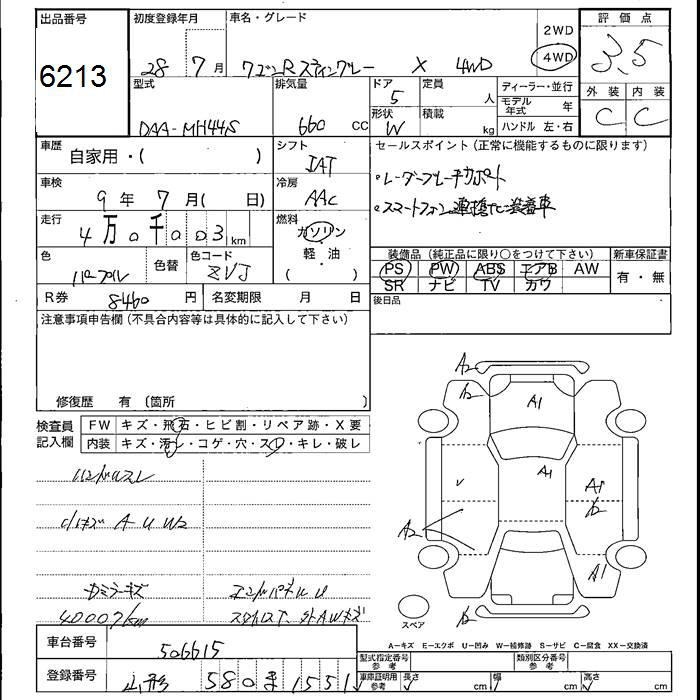 出品番号 初度登録年月 車名・グレード 評価点
6213
28 7月 ワゴンR スティングレー X 4WD
2WD
4WD
3.5
型式 排気量 ドア 定員 ディーラー・並行 外装 内装
DAA-MH44S 660 cc 5 人 モデル年式 年 C C
形状 積載 ハンドル 左・右
W kg
車歴 自家用・( ) シフト セールスポイント(正常に機能するものに限ります)
IAT
・レーダーブレーキサポート
車検 9年 7月( 日) 冷房 AAC
・スマートフォン連携ナビ装着車
走行 4万0千003km 燃料 ガソリン
軽・油
( )
色 パープル 色替 色コード ZVJ
装備品(純正品に限り○をつけて下さい) 新車保証書
PS PW ABS エアB AW 有・無
SR ナビ TV カワ
R券 8460円 名変期限 月 日 後日品
注意事項申告欄(不具合内容等は具体的に記入して下さい)
修復歴 有 (箇所 )
検査員記入欄 FW キズ・飛石・ヒビ割・リペア跡・X要
内装 キズ・汚レ・コゲ・穴・スレ・キレ・破レ
ハンドルスレ
小キズ A U W2
ミラーキズ エンドパネルU
外AWキズ
A2
A2 A1
A1
A1
A2
A1
スペア
A-キズ E-エクボ U-凹み W-補修跡 S-サビ C-腐食 XX-交換済
車台番号 506615
型式指定番号 参考 類別区分番号 参考
登録番号 山形 580 ま 1551
車庫証明用 参考 長さ cm 幅 cm 高さ cm